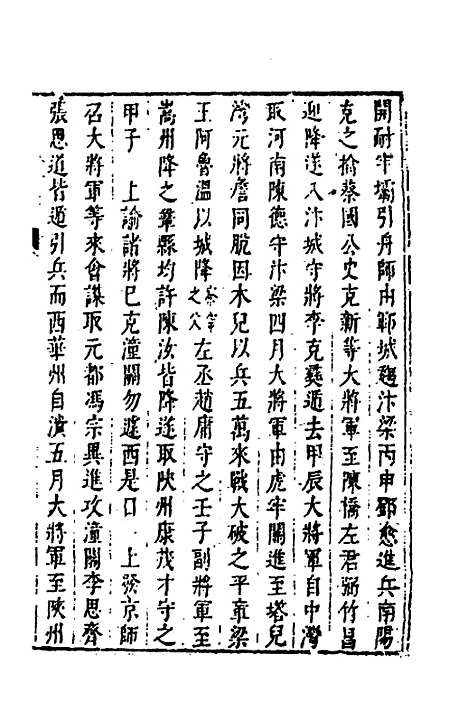 開耐牢壩引舟師由鄆城趨汴梁丙申鄧愈進兵南陽
克之擒蔡國公史克新等大將軍至陳橋左君弼竹昌
迎降送入汴城守將李克彝遁去甲辰大將軍自中灣
取河南陳德守汴梁四月大將軍由虎牢關進至塔兒
灣元將詹同脫因木兒以兵五萬來戰大破之平章梁
王阿魯溫以城降察罕之父左丞趙庸守之壬子副將軍至
嵩州降之鞏縣均許陳汝皆降遂取陝州康茂才守之
甲子　上諭諸將巳克潼關勿遽西是日　上發京師
召大將軍等來會謀取元都馮宗異進攻潼關李思齊
張思道皆遁引兵而西華州自潰五月大將軍至陝州